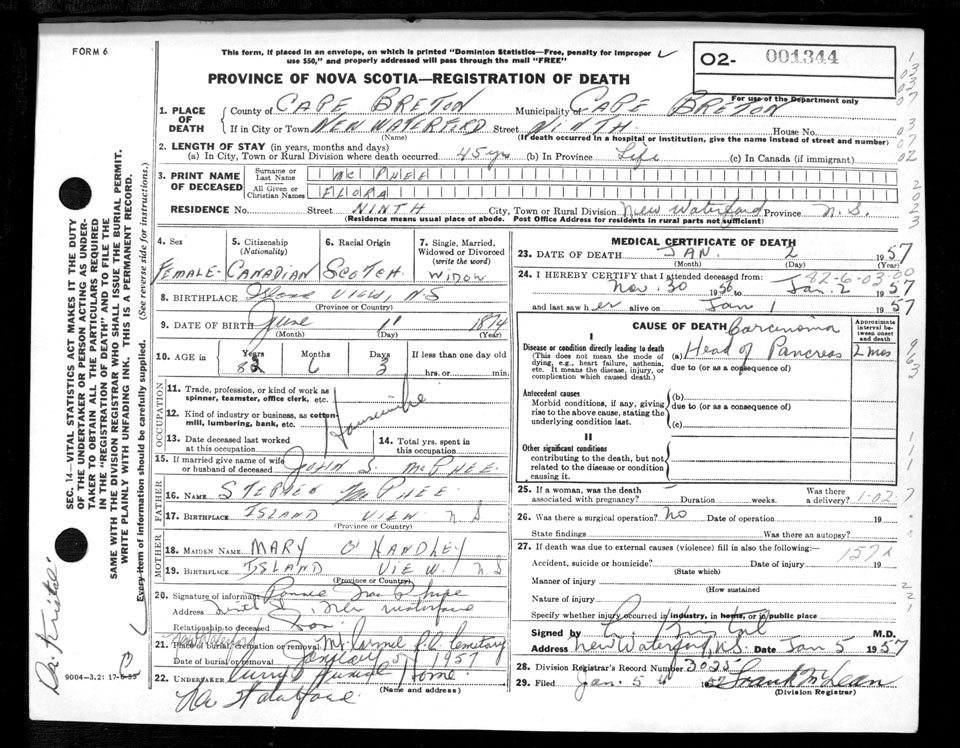 FORM 6
This form, if placed in an envelope, on which is printed "Dominion Statistics—Free, penalty for improper
use $50," and properly addressed will pass through the mail "FREE"
02- 001344
For use of the Department only
PROVINCE OF NOVA SCOTIA—REGISTRATION OF DEATH
1. PLACE OF DEATH
County of CAPE BRETON Municipality of CAPE BRETON
If in City or Town NEW WATERFORD Street NINTH House No.
(Name) (If death occurred in a hospital or institution, give the name instead of street and number)
2. LENGTH OF STAY (in years, months and days)
(a) In City, Town or Rural Division where death occurred 45 yrs (b) In Province Life (c) In Canada (if immigrant)
3. PRINT NAME OF DECEASED
Surname or Last Name Mc PHEE
All Given or Christian Names FLORA
RESIDENCE No. Street NINTH City, Town or Rural Division New Waterford Province N.S.
(Residence means usual place of abode. Post Office Address for residents in rural parts not sufficient)
4. Sex 5. Citizenship (Nationality) 6. Racial Origin 7. Single, Married, Widowed or Divorced (write the word)
FEMALE- CANADIAN SCOTCH WIDOW
8. BIRTHPLACE VIEW, N.S
(Province or Country)
9. DATE OF BIRTH June 1874
(Month) (Day) (Year)
10. AGE in Years Months Days If less than one day old
82 6 3 hrs. or min.
OCCUPATION
11. Trade, profession, or kind of work as spinner, teamster, office clerk, etc.
12. Kind of industry or business, as cotton-mill, lumbering, bank, etc.
Housewife
13. Date deceased last worked at this occupation
14. Total yrs. spent in this occupation
15. If married give name of wife or husband of deceased JOHN S. McPHEE.
FATHER
16. NAME STEPHEN McPHEE.
17. BIRTHPLACE ISLAND VIEW N S
(Province or Country)
MOTHER
18. MAIDEN NAME MARY O'HANDLEY
19. BIRTHPLACE ISLAND VIEW. N S
(Province or Country)
20. Signature of informant
Address New Waterford
Relationship to deceased Son
New Waterford
21. Place of burial, cremation or removal Mt. Carmel R.C. Cemetary
Date of burial or removal January 5, 1957
22. UNDERTAKER Curry Funeral Home.
(Name and address)
New Waterford
MEDICAL CERTIFICATE OF DEATH
23. DATE OF DEATH JAN. 2 1957
(Month) (Day) (Year)
24. I HEREBY CERTIFY that I attended deceased from: 82-6-03-00
Nov. 30 1956 to Jan. 2 1957
and last saw her alive on Jan 1 1957
CAUSE OF DEATH Carcinoma
Approximate interval between onset and death
I
Disease or condition directly leading to death
(This does not mean the mode of dying, e.g., heart failure, asthenia, etc. It means the disease, injury, or complication which caused death.)
(a) Head of Pancreas 2 mos
due to (or as a consequence of)
Antecedent causes
Morbid conditions, if any, giving rise to the above cause, stating the underlying condition last.
(b)
due to (or as a consequence of)
(c)
II
Other significant conditions
contributing to the death, but not related to the disease or condition causing it.
25. If a woman, was the death associated with pregnancy? Duration weeks. Was there a delivery? 1-02
26. Was there a surgical operation? No Date of operation 19
State findings Was there an autopsy?
27. If death was due to external causes (violence) fill in also the following:—
157x
Accident, suicide or homicide? Date of injury 19
(State which)
Manner of injury
(How sustained)
Nature of injury
Specify whether injury occurred in industry, in home, or in public
Signed by M.D.
Address New Waterford, N.S. Date Jan 5 1957
28. Division Registrar's Record Number 3025
29. Filed Jan. 5 1957 Frank McLean
(Division Registrar)
SEC. 14—VITAL STATISTICS ACT MAKES IT THE DUTY
OF THE UNDERTAKER OR PERSON ACTING AS UNDER-
TAKER TO OBTAIN ALL THE PARTICULARS REQUIRED
IN THE "REGISTRATION OF DEATH" AND TO FILE THE
SAME WITH THE DIVISION REGISTRAR WHO SHALL ISSUE THE BURIAL PERMIT.
WRITE PLAINLY WITH UNFADING INK. THIS IS A PERMANENT RECORD.
Every item of information should be carefully supplied. (See reverse side for instructions.)
9004-3.2: 17-6-55